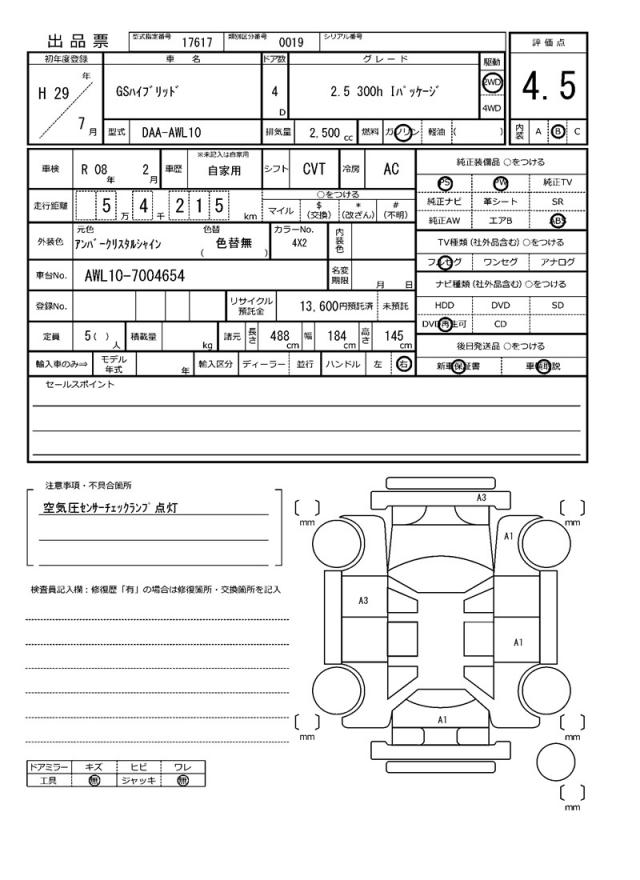 出品票 型式指定番号 17617 類別区分番号 0019 シリアル番号
評価点
4.5
内装 A B C
初年度登録 車名 ドア数 グレード 駆動
H 29 年 7 月
GSハイブリッド 4 D 2.5 300h Iパッケージ 2WD 4WD
型式 DAA-AWL10 排気量 2,500 cc 燃料 ガソリン 軽油 ( )
車検 R 08 年 2 月 車歴 ※未記入は自家用 自家用 シフト CVT 冷房 AC
走行距離 5 万 4 千 2 1 5 km ○をつける
マイル $(交換) *(改ざん) #(不明)
外装色 元色 アンバークリスタルシャイン 色替 ( 色替無 ) カラーNo. 4X2 内装色
車台No. AWL10-7004654 名変期限 月 日
登録No. リサイクル預託金 13,600円預託済 未預託
定員 5( ) 人 積載量 kg 諸元 長さ 488 cm 幅 184 cm 高さ 145 cm
輸入車のみ⇒ モデル年式 年 輸入区分 ディーラー 並行 ハンドル 左 右
純正装備品 ○をつける
PS PW 純正TV
純正ナビ 革シート SR
純正AW エアB ABS
TV種類 (社外品含む) ○をつける
フルセグ ワンセグ アナログ
ナビ種類 (社外品含む) ○をつける
HDD DVD SD
DVD再生可 CD
後日発送品 ○をつける
新車保証書 車輌取説
セールスポイント
注意事項・不具合箇所
空気圧センサーチェックランプ点灯
検査員記入欄:修復歴「有」の場合は修復箇所・交換箇所を記入
A3
[ ] mm
[ ] mm
A1
A3
A1
A1
[ ] mm
[ ] mm
[ ] mm
ドアミラー キズ ヒビ ワレ
工具 無 ジャッキ 無